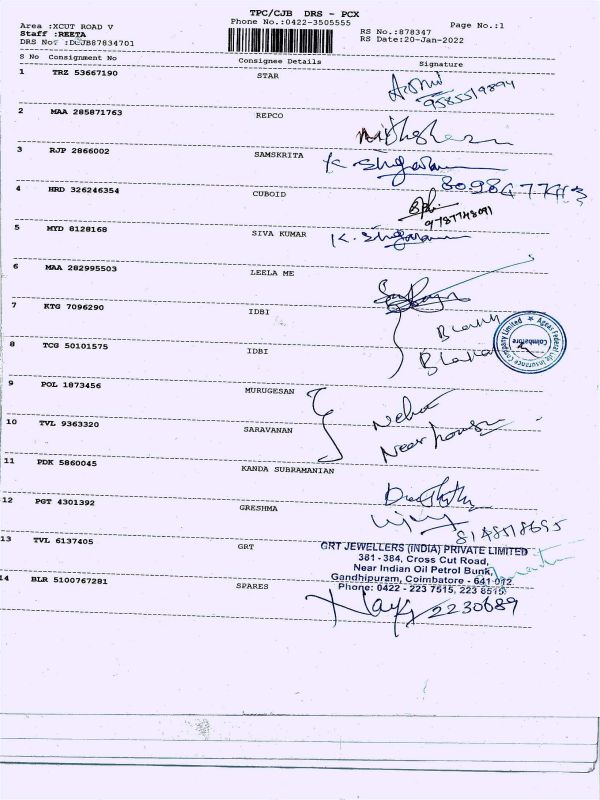 TPC/CJB DRS - PCX
Area :XCUT ROAD V Phone No.:0422-3505555 Page No.:1
Staff :REETA RS No.:878347
DRS No: :DCJB87834701 RS Date:20-Jan-2022
S No Consignment No Consignee Details Signature
1 TRZ 53667190 STAR
9585519894
2 MAA 285871763 REPCO
3 RJP 2866002 SAMSKRITA K. Singaram
8098477413
4 HRD 326246354 CUBOID
9787748091
5 MYD 8128168 SIVA KUMAR K. Singaram
6 MAA 282995503 LEELA ME
7 KTG 7096290 IDBI
8 TCG 50101575 IDBI
Ageas Federal Life Insurance Company Limited
Coimbatore
9 POL 1873456 MURUGESAN
10 TVL 9363320 SARAVANAN Near house
11 PDK 5860045 KANDA SUBRAMANIAN
12 PGT 4301392 GRESHMA
8148518695
13 TVL 6137405 GRT
GRT JEWELLERS (INDIA) PRIVATE LIMITED
381 - 384, Cross Cut Road,
Near Indian Oil Petrol Bunk,
Gandhipuram, Coimbatore - 641 012.
Phone: 0422 - 223 7515, 223 8515
14 BLR 5100767281 SPARES
2230689